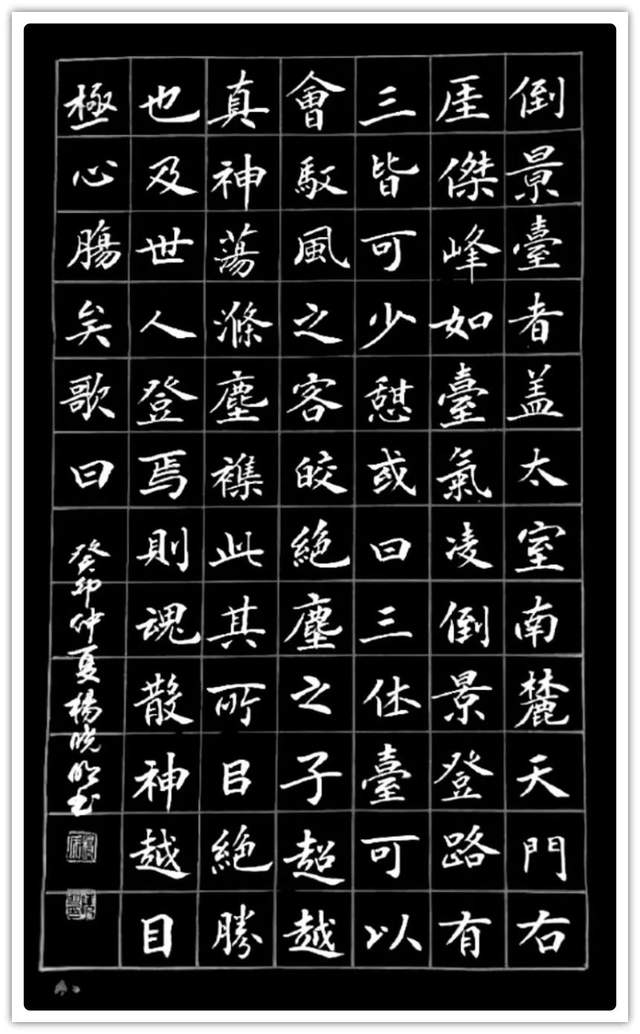 倒景臺者盖太室南麓天門右
厓傑峰如臺氣凌倒景登路有
三皆可少憇或曰三休臺可以
會馭風之客皎絕塵之子超越
真神蕩滌塵襍此其所㠯絕勝
也及世人登焉則魂散神越目
極心腸矣歌曰
癸卯仲夏楊曉明書